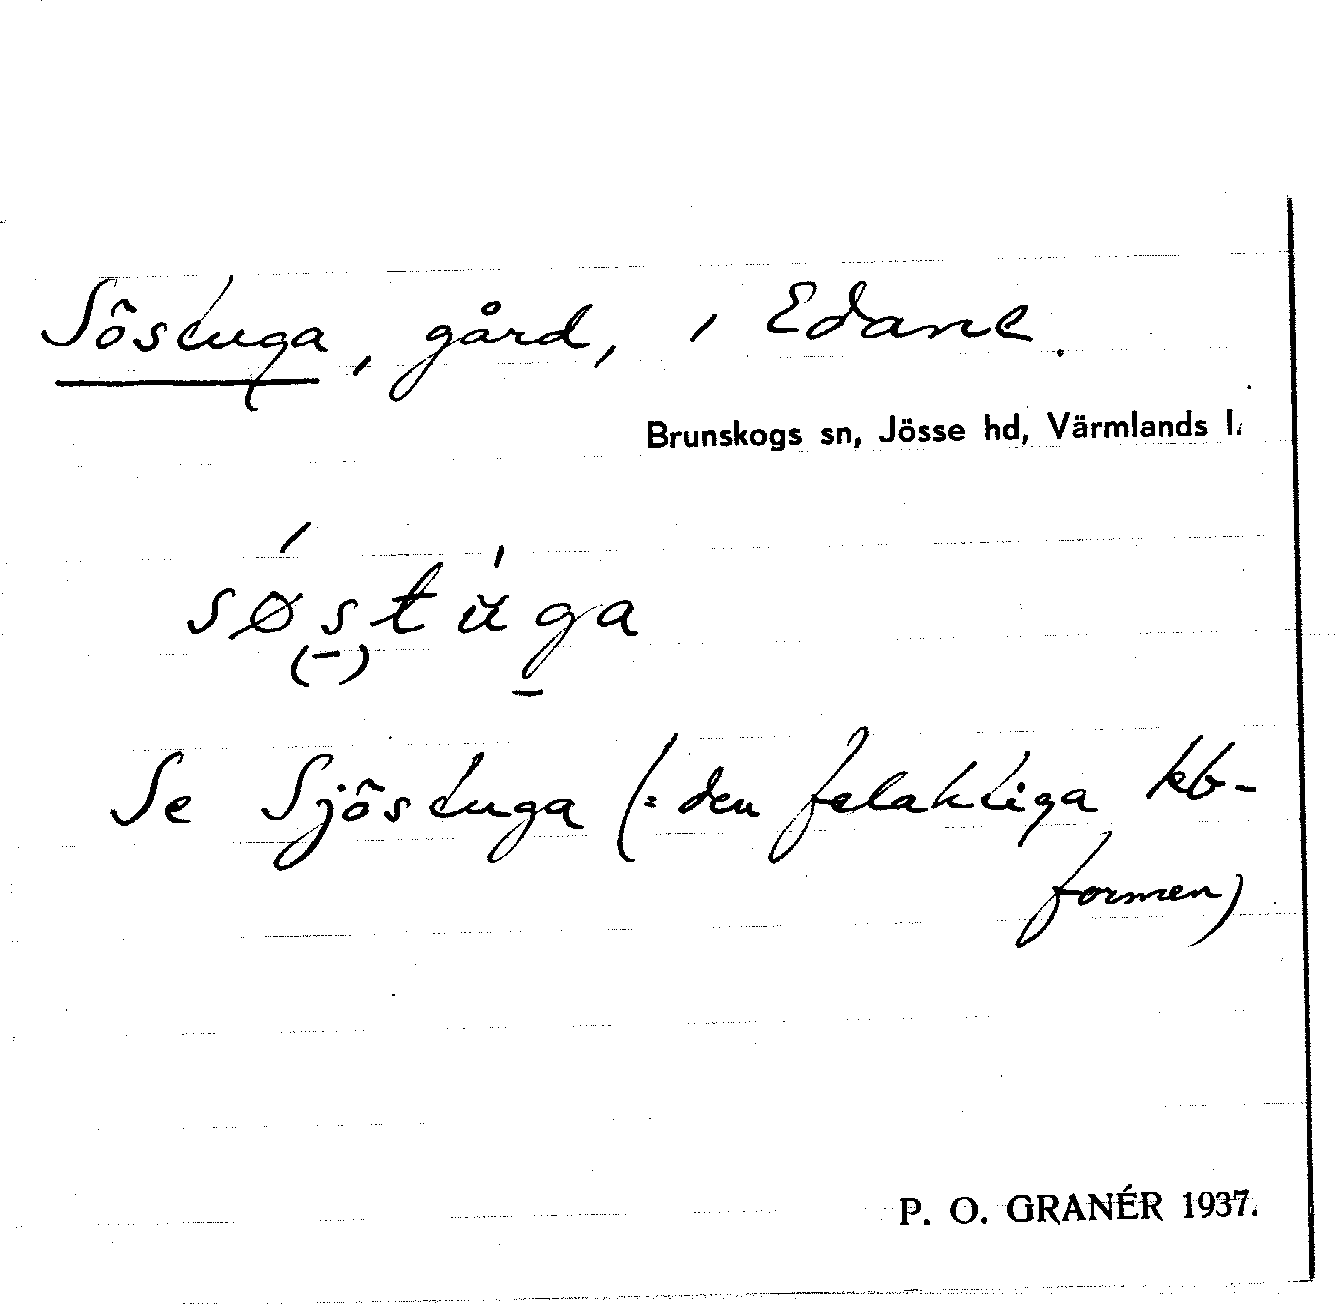 Söstuga, gård, i Edane.
Brunskogs sn, Jösse hd, Värmlands l.
sǿstúga
(-)
Se Sjöstuga (= den felaktiga kb-
formen)
P. O. GRANÉR 1937.